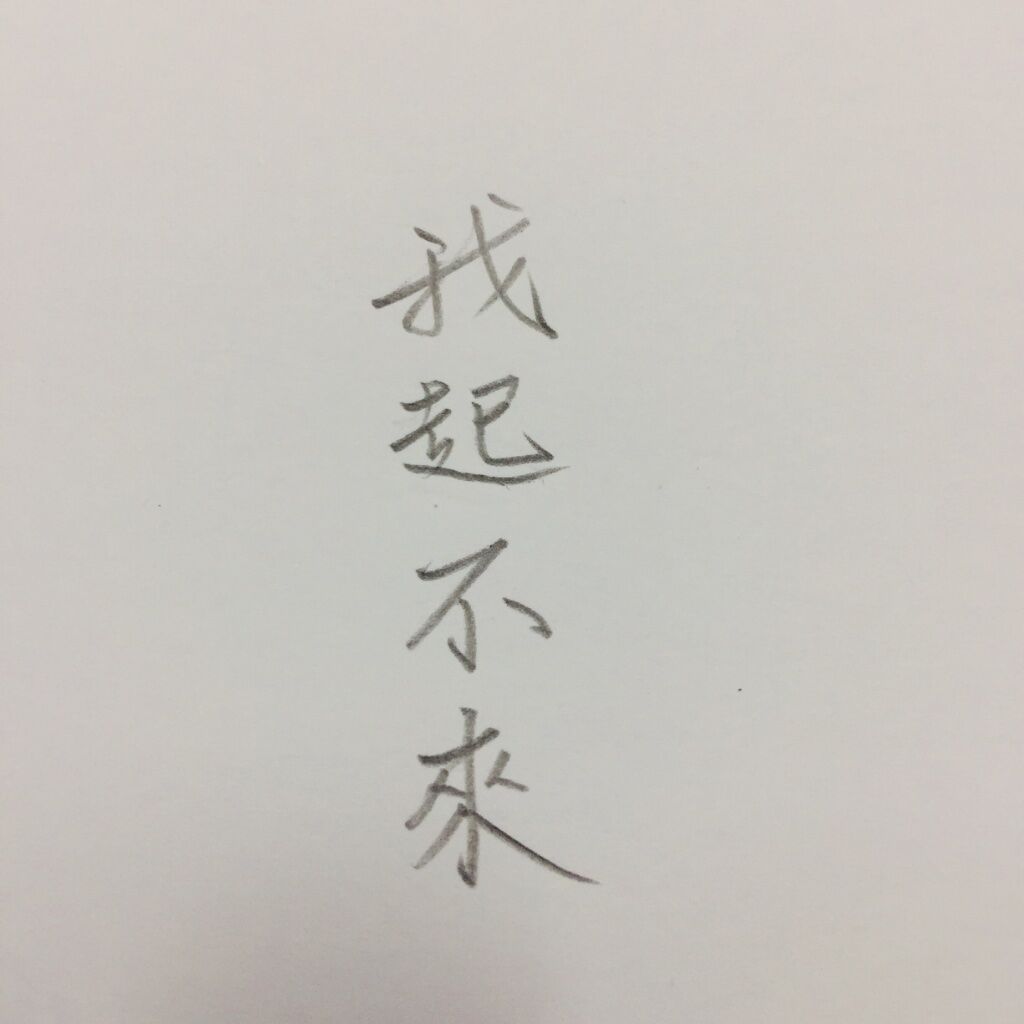 我起不來